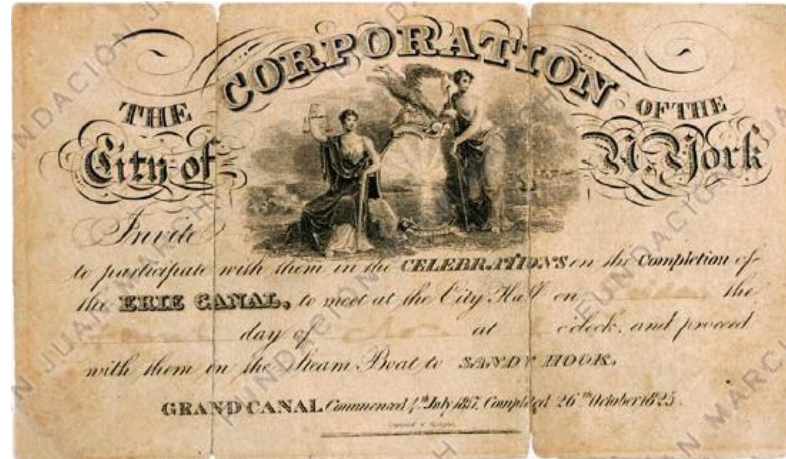 THE CORPORATION OF THE
City of N. York
Invite
to participate with them in the CELEBRATIONS on the Completion of
the ERIE CANAL, to meet at the City Hall on the
day of at o'clock, and proceed
with them in the Steam Boat to SANDY HOOK.
GRAND CANAL Commenced 4th July 1817. Completed 26th October 1825.
FUNDACIÓN JUAN MARCH